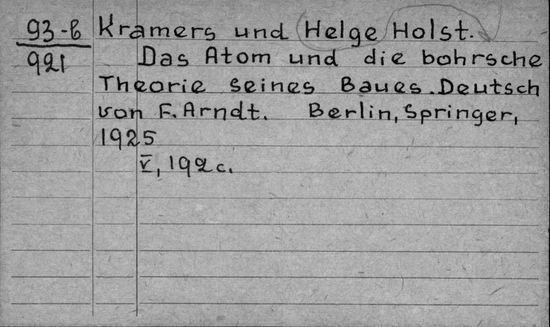 93-б Kramers und Helge Holst.
921 Das Atom und die bohrsche
Theorie seines Baues. Deutsch
von F. Arndt. Berlin, Springer,
1925
V, 192 c.